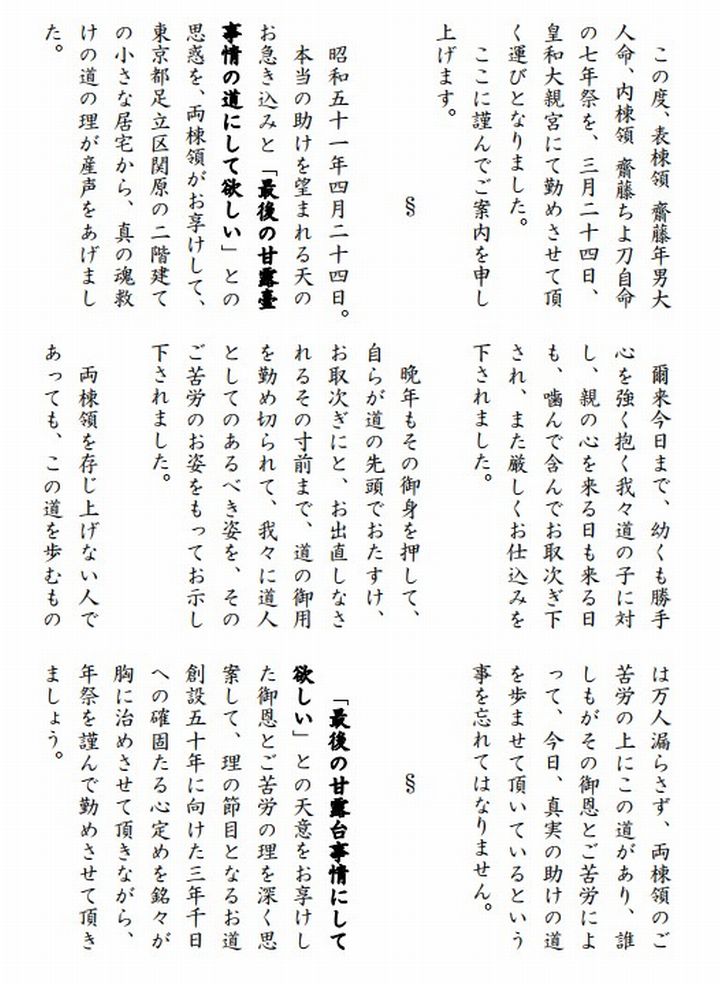 この度、表棟領 齋藤年男大
人命、内棟領 齋藤ちよ刀自命
の七年祭を、三月二十四日、
皇和大親宮にて勤めさせて頂
く運びとなりました。
ここに謹んでご案内を申し
上げます。
§
昭和五十一年四月二十四日。
本当の助けを望まれる天の
お急き込みと「最後の甘露臺
事情の道にして欲しい」との
思惑を、両棟領がお享けして、
東京都足立区関原の二階建て
の小さな居宅から、真の魂救
けの道の理が産声をあげまし
た。
爾来今日まで、幼くも勝手
心を強く抱く我々道の子に対
し、親の心を来る日も来る日
も、噛んで含んでお取次ぎ下
され、また厳しくお仕込みを
下されました。
晩年もその御身を押して、
自らが道の先頭でおたすけ、
お取次ぎにと、お出直しなさ
れるその寸前まで、道の御用
を勤め切られて、我々に道人
としてのあるべき姿を、その
ご苦労のお姿をもってお示し
下されました。
両棟領を存じ上げない人で
あっても、この道を歩むもの
は万人漏らさず、両棟領のご
苦労の上にこの道があり、誰
しもがその御恩とご苦労によ
って、今日、真実の助けの道
を歩ませて頂いているという
事を忘れてはなりません。
§
「最後の甘露台事情にして
欲しい」との天意をお享けし
た御恩とご苦労の理を深く思
案して、理の節目となるお道
創設五十年に向けた三年千日
への確固たる心定めを銘々が
胸に治めさせて頂きながら、
年祭を謹んで勤めさせて頂き
ましょう。